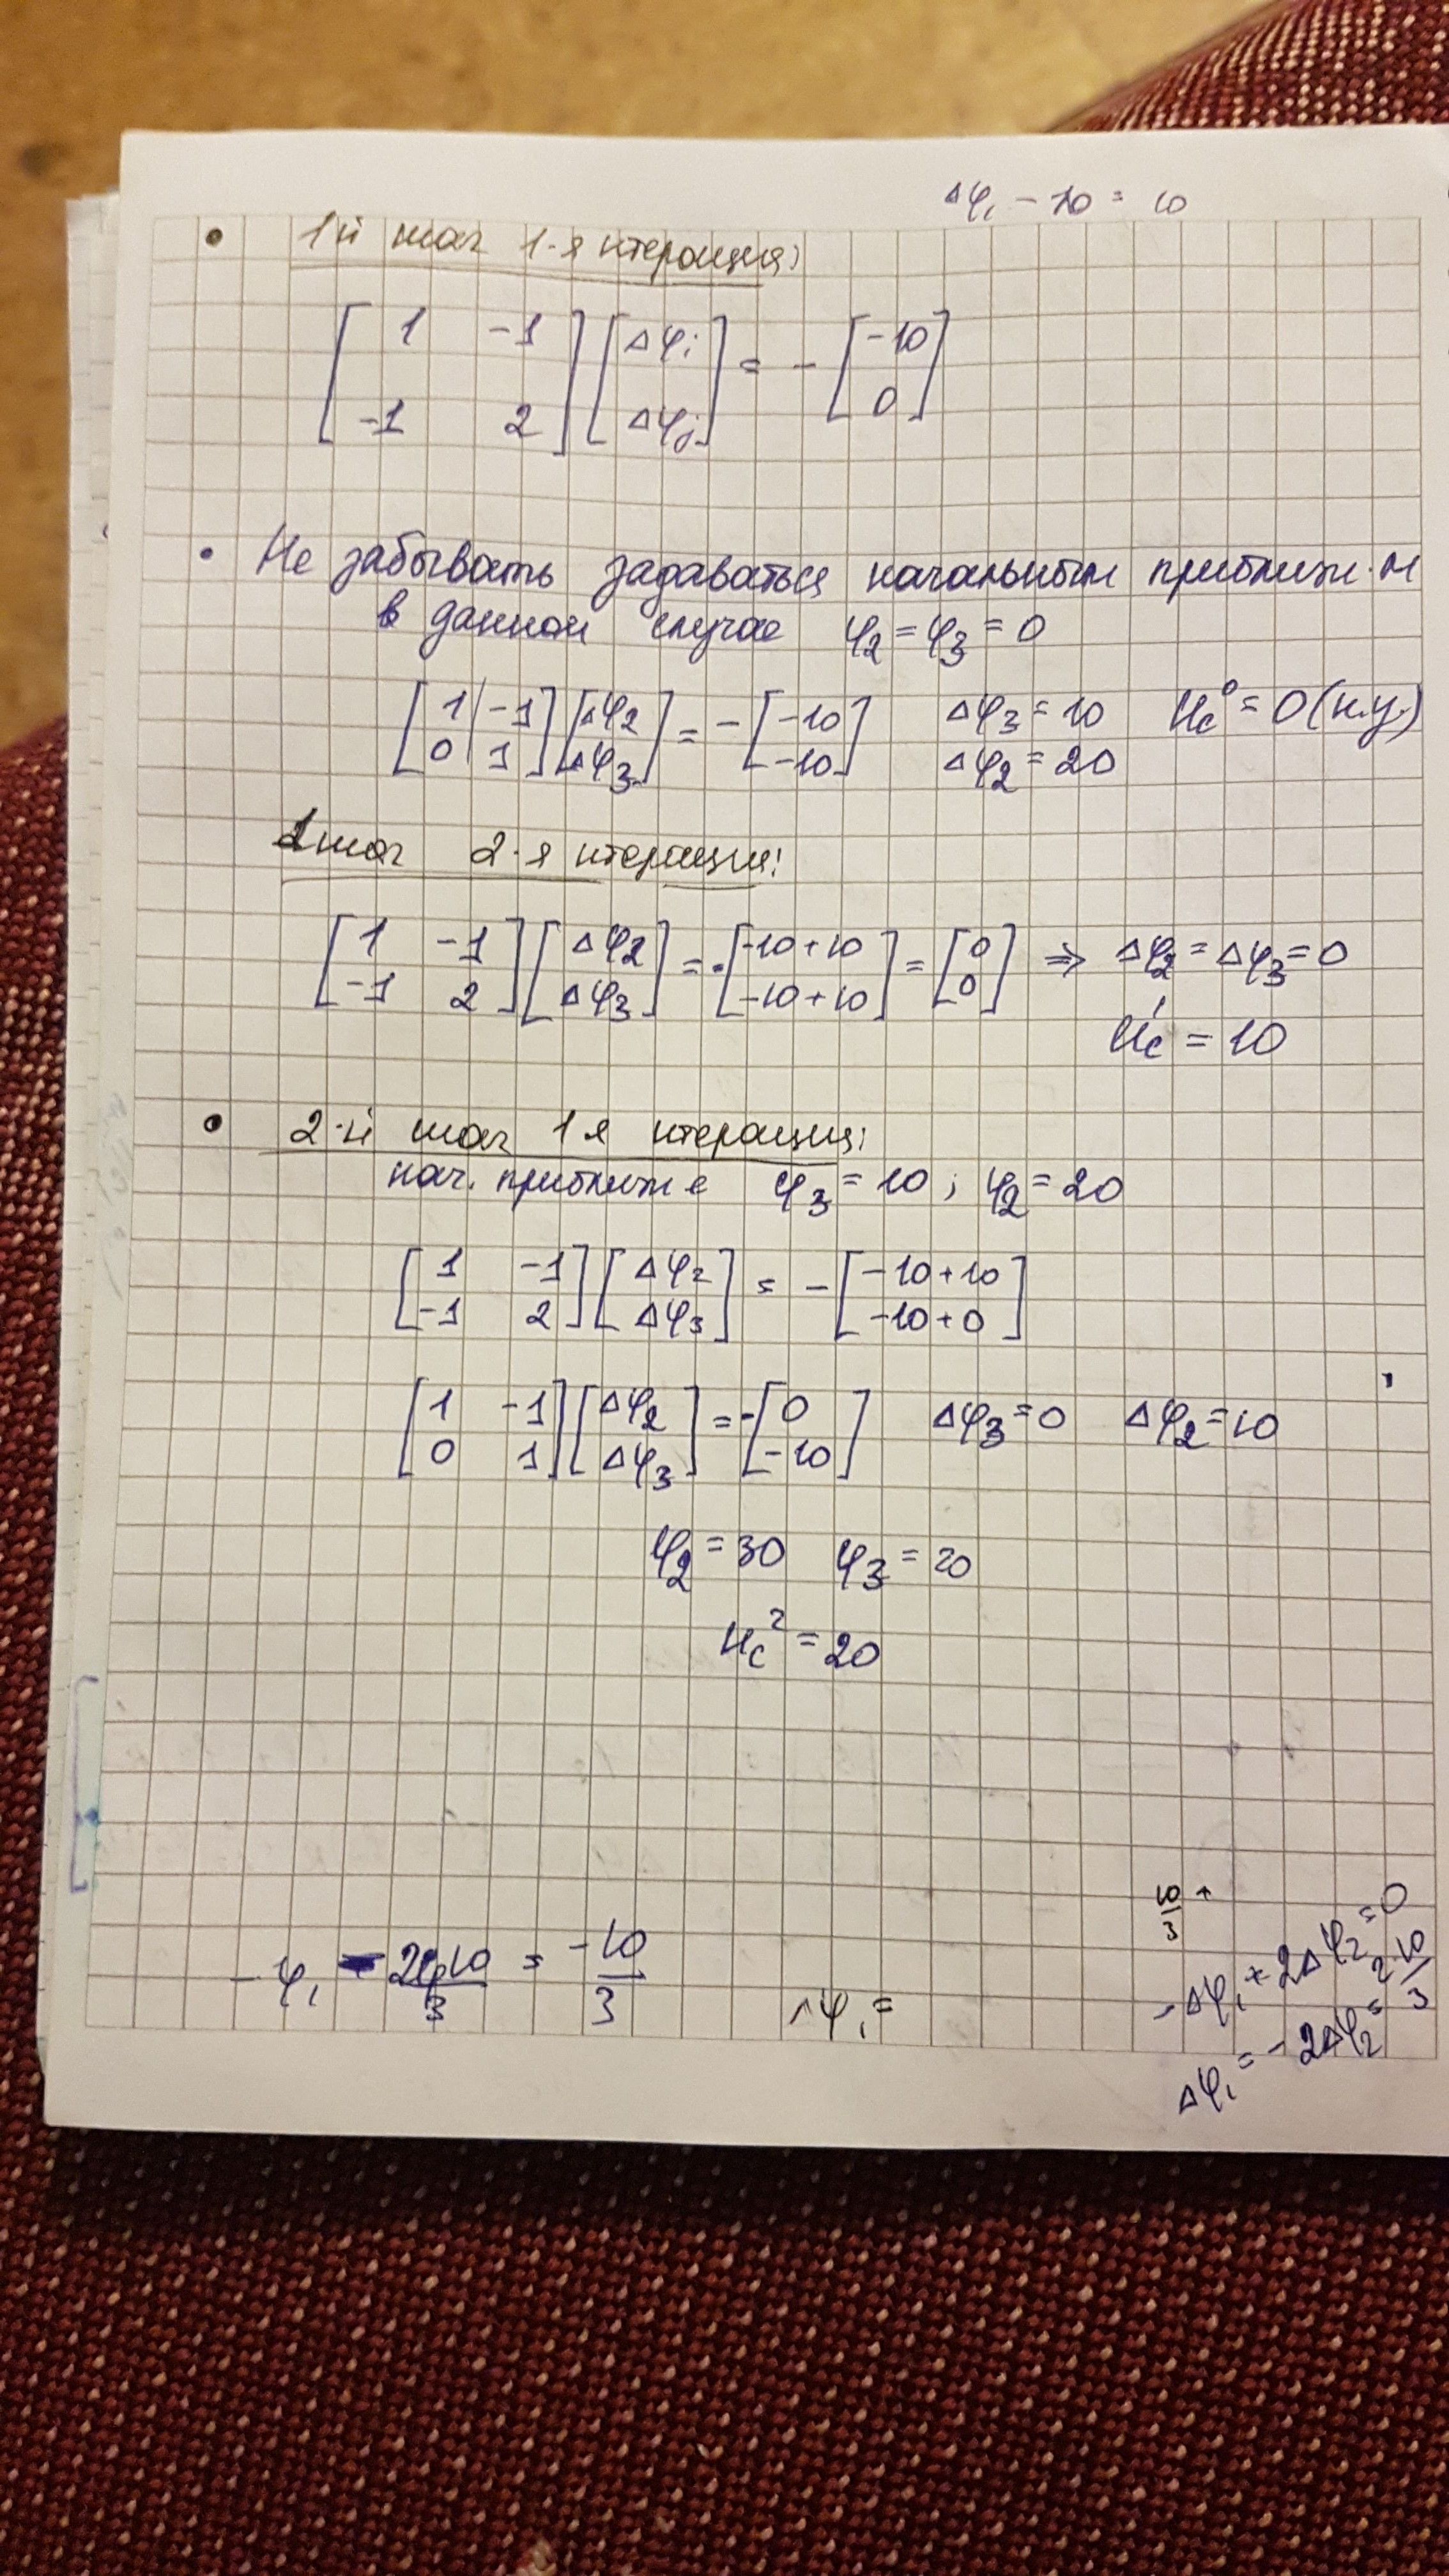 Δφ₁ - 10 = 10
• 1й шаг 1-я итерация:
[1 -1; -1 2] [Δφi; Δφj] = - [-10; 0]
• Не забывать задаваться начальным приближ.м
в данном случае φ₂ = φ₃ = 0
[1 -1; 0 1] [Δφ₂; Δφ₃] = - [-10; -10] Δφ₃ = 10 Δφ₂ = 20 Uc⁰ = 0 (н.у.)
1 шаг 2-я итерация:
[1 -1; -1 2] [Δφ₂; Δφ₃] = - [-10+10; -10+10] = [0; 0] ⇒ Δφ₂ = Δφ₃ = 0
Uc¹ = 10
• 2-й шаг 1я итерация:
нач. приближ е φ₃ = 10; φ₂ = 20
[1 -1; -1 2] [Δφ₂; Δφ₃] = - [-10+10; -10+0]
[1 -1; 0 1] [Δφ₂; Δφ₃] = - [0; -10] Δφ₃ = 0 Δφ₂ = 10
φ₂ = 30 φ₃ = 20
Uc² = 20
10/3 +
-Δφ₁ + 2Δφ₂ = 0
Δφ₁ = -2Δφ₂ = 2·10/3
= -10/3
Δφ₁ =